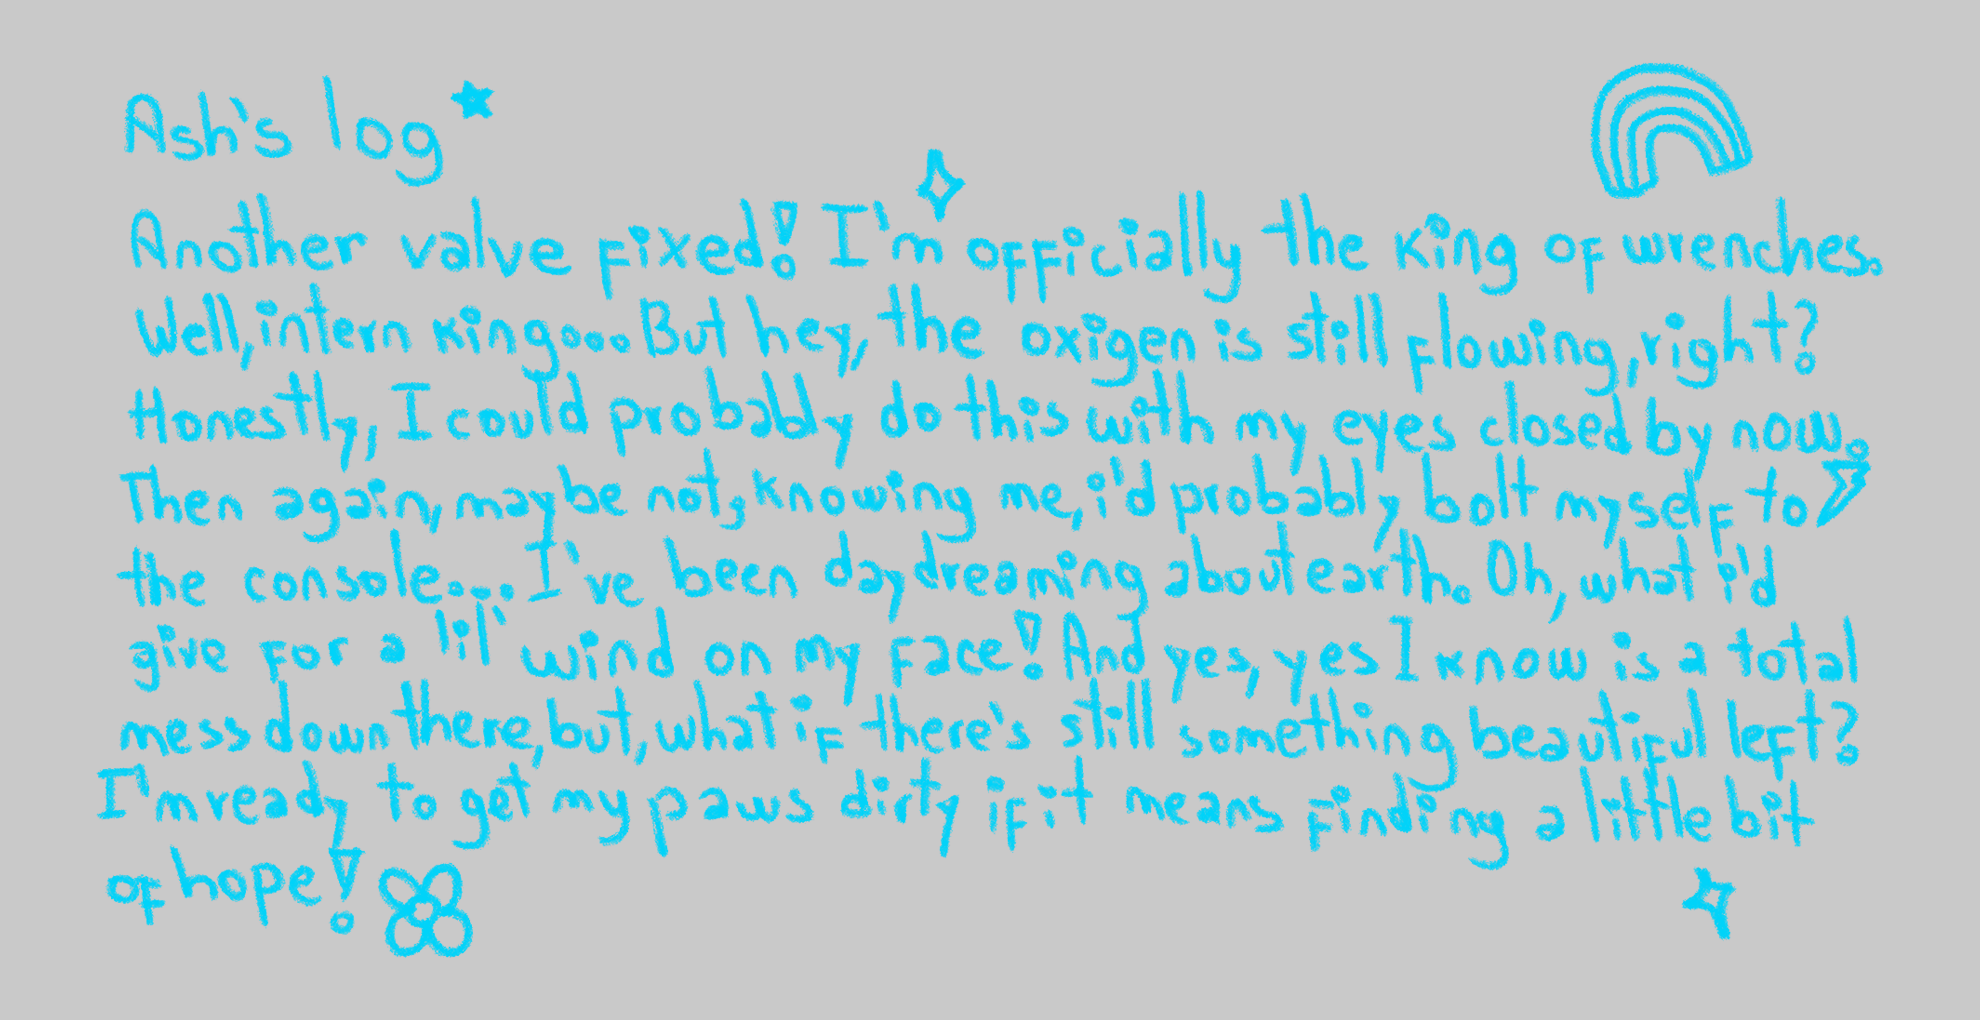 Ash's log
Another valve fixed! I'm officially the king of wrenches.
Well, intern king... But hey, the oxigen is still flowing, right?
Honestly, I could probably do this with my eyes closed by now.
Then again, maybe not, knowing me, i'd probably bolt myself to
the console... I've been daydreaming about earth. Oh, what i'd
give for a lil' wind on my face! And yes, yes I know is a total
mess down there, but, what if there's still something beautiful left?
I'm ready to get my paws dirty if it means finding a little bit
of hope!